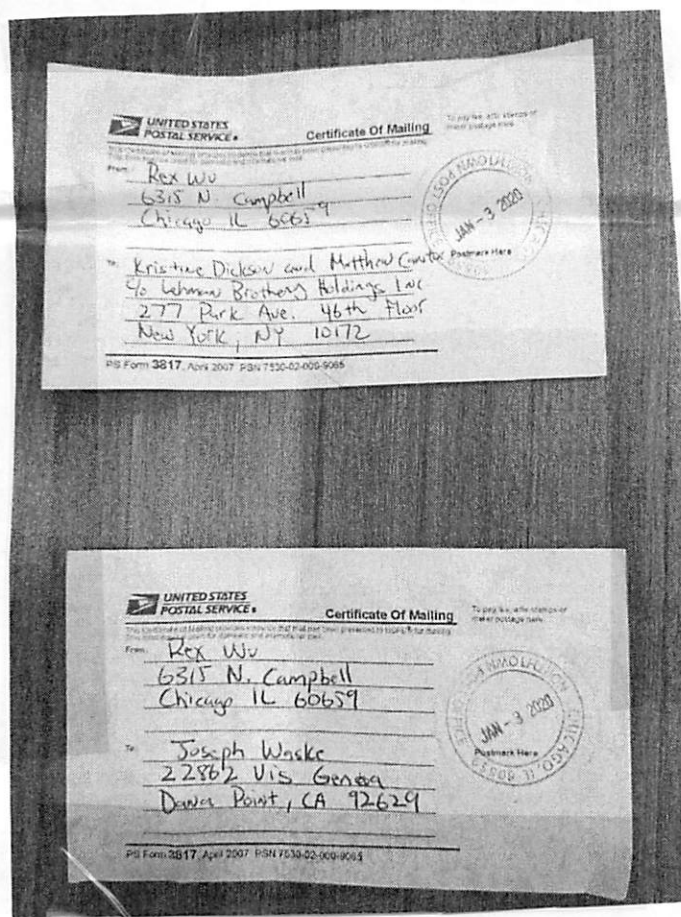 UNITED STATES
POSTAL SERVICE®
Certificate Of Mailing
To pay fee, affix stamps or
meter postage here.
From:
Rex Wu
6315 N. Campbell
Chicago IL 60659
To:
Kristine Dickson and Matthew
c/o Lehman Brothers Holdings Inc
277 Park Ave. 46th Floor
New York, NY 10172
POST OFFICE
JAN - 3 2020
Postmark Here
PS Form 3817, April 2007 PSN 7530-02-000-9065
UNITED STATES
POSTAL SERVICE®
Certificate Of Mailing
To pay fee, affix stamps or
meter postage here.
From:
Rex Wu
6315 N. Campbell
Chicago IL 60659
To:
Joseph Waske
22862 Via Genoa
Dana Point, CA 92629
POST OFFICE
CHICAGO, IL
JAN - 3 2020
Postmark Here
PS Form 3817, April 2007 PSN 7530-02-000-9065